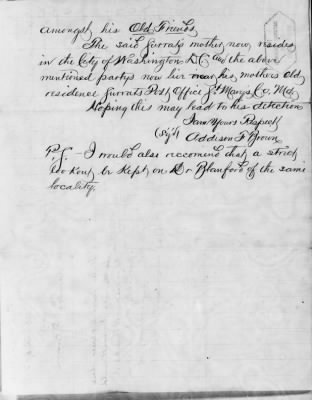 amongst his Old Friends
The said Surrats mother now resides
in the City of Washington D.C. and the above
mentioned partys now live near his mothers old
residence Surrats Post Office St Marys Co. Md.
Hoping this may lead to his detection
I am Yours Respect
(Sig'd) Addison F Brown
P.S.- I would also reccomend that a strict
look out be kept on Dr Blanford of the same
locality.